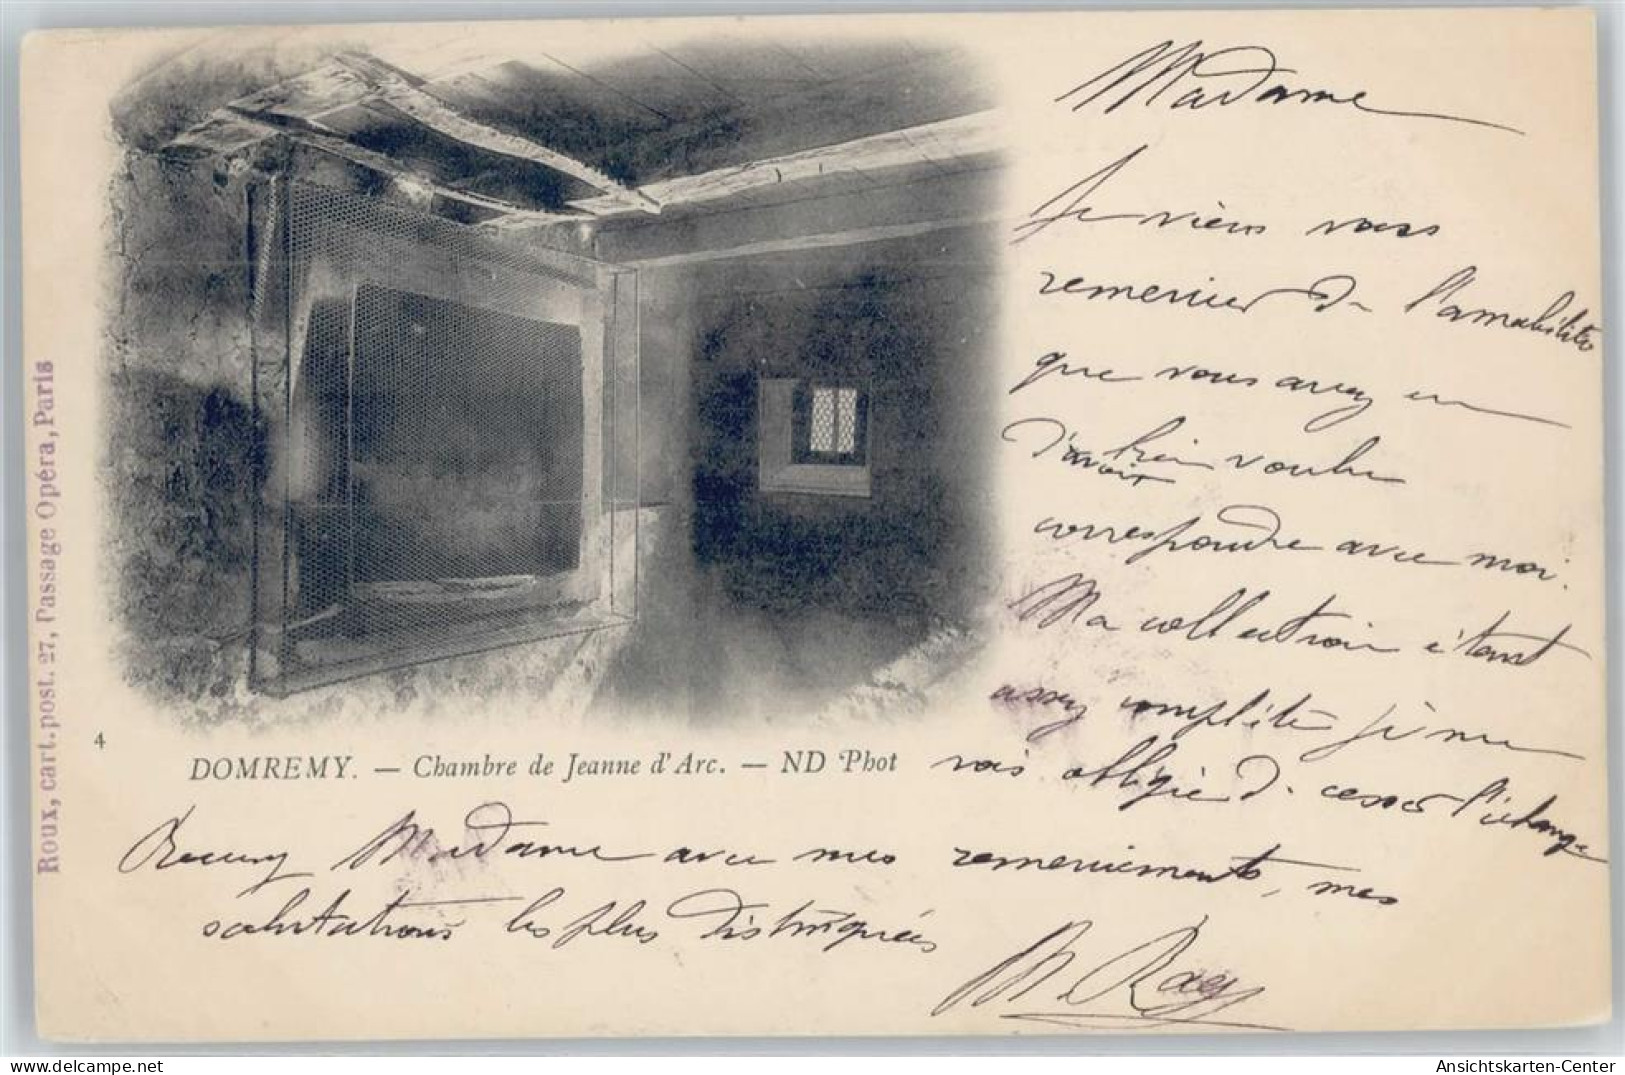 Madame
Je viens vous
remercier de l'amabilité
que vous avez eu
d'avoir bien voulu
correspondre avec moi.
Ma collection étant
assez complète je me
vois obligé de cesser l'échange
Recevez Madame avec mes remerciements, mes
salutations les plus distinguées
4
DOMREMY. — Chambre de Jeanne d'Arc. — ND Phot
Roux, cart. post. 27, Passage Opéra, Paris
AnsichtsKarten-Center